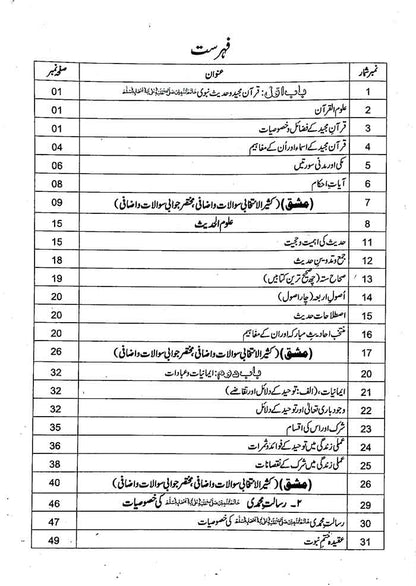 فہرست
نمبر شمار عنوان صفحہ نمبر
1 باب اول: قرآن مجید و حدیث نبوی 01
2 علوم القرآن 01
3 قرآن مجید کے فضائل و خصوصیات 01
4 قرآن مجید کے اسماء اور ان کے مفاہیم 04
5 مکی اور مدنی سورتیں 06
6 آیات احکام 08
7 (مشق) (کثیر الانتخابی سوالات و اضافی، مختصر جوابی سوالات و اضافی) 09
8 علوم الحدیث 15
11 حدیث کی اہمیت و حجیت 15
12 جمع و تدوین حدیث 18
13 صحاح ستہ (چھ صحیح ترین کتابیں) 19
14 اُصولِ اربعہ (چار اصول) 20
15 اصطلاحات حدیث 20
16 منتخب احادیثِ مبارکہ اور ان کے مفاہیم 20
17 (مشق) (کثیر الانتخابی سوالات و اضافی، مختصر جوابی سوالات و اضافی) 26
20 باب دوم: ایمانیات و عبادات 32
21 ایمانیات، (الف: توحید کے دلائل اور تقاضے) 32
22 وجود باری تعالیٰ اور توحید کے دلائل 32
23 شرک اور اس کی اقسام 35
24 عملی زندگی میں توحید کے فوائد و ثمرات 36
25 عملی زندگی میں شرک کے نقصانات 38
26 (مشق) (کثیر الانتخابی سوالات و اضافی، مختصر جوابی سوالات و اضافی) 40
29 ۲۔ رسالت محمدی کی خصوصیات 46
30 رسالت محمدی کی خصوصیات 47
31 عقیدہ ختم نبوت 49